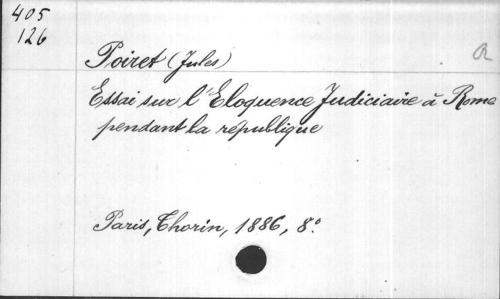 405
126
Poiret (Jules)
R
Essai sur l'Eloquence Judiciaire à Rome
pendant la république
Paris, Thorin, 1886, 8º